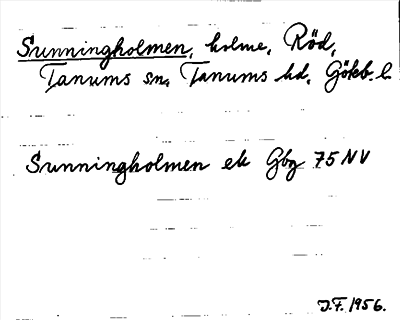 Sunningholmen, holme, Röd,
Tanums sn, Tanums hd, Göteb. l.
Sunningholmen ek Gbg 75 NV
J.F. 1956.